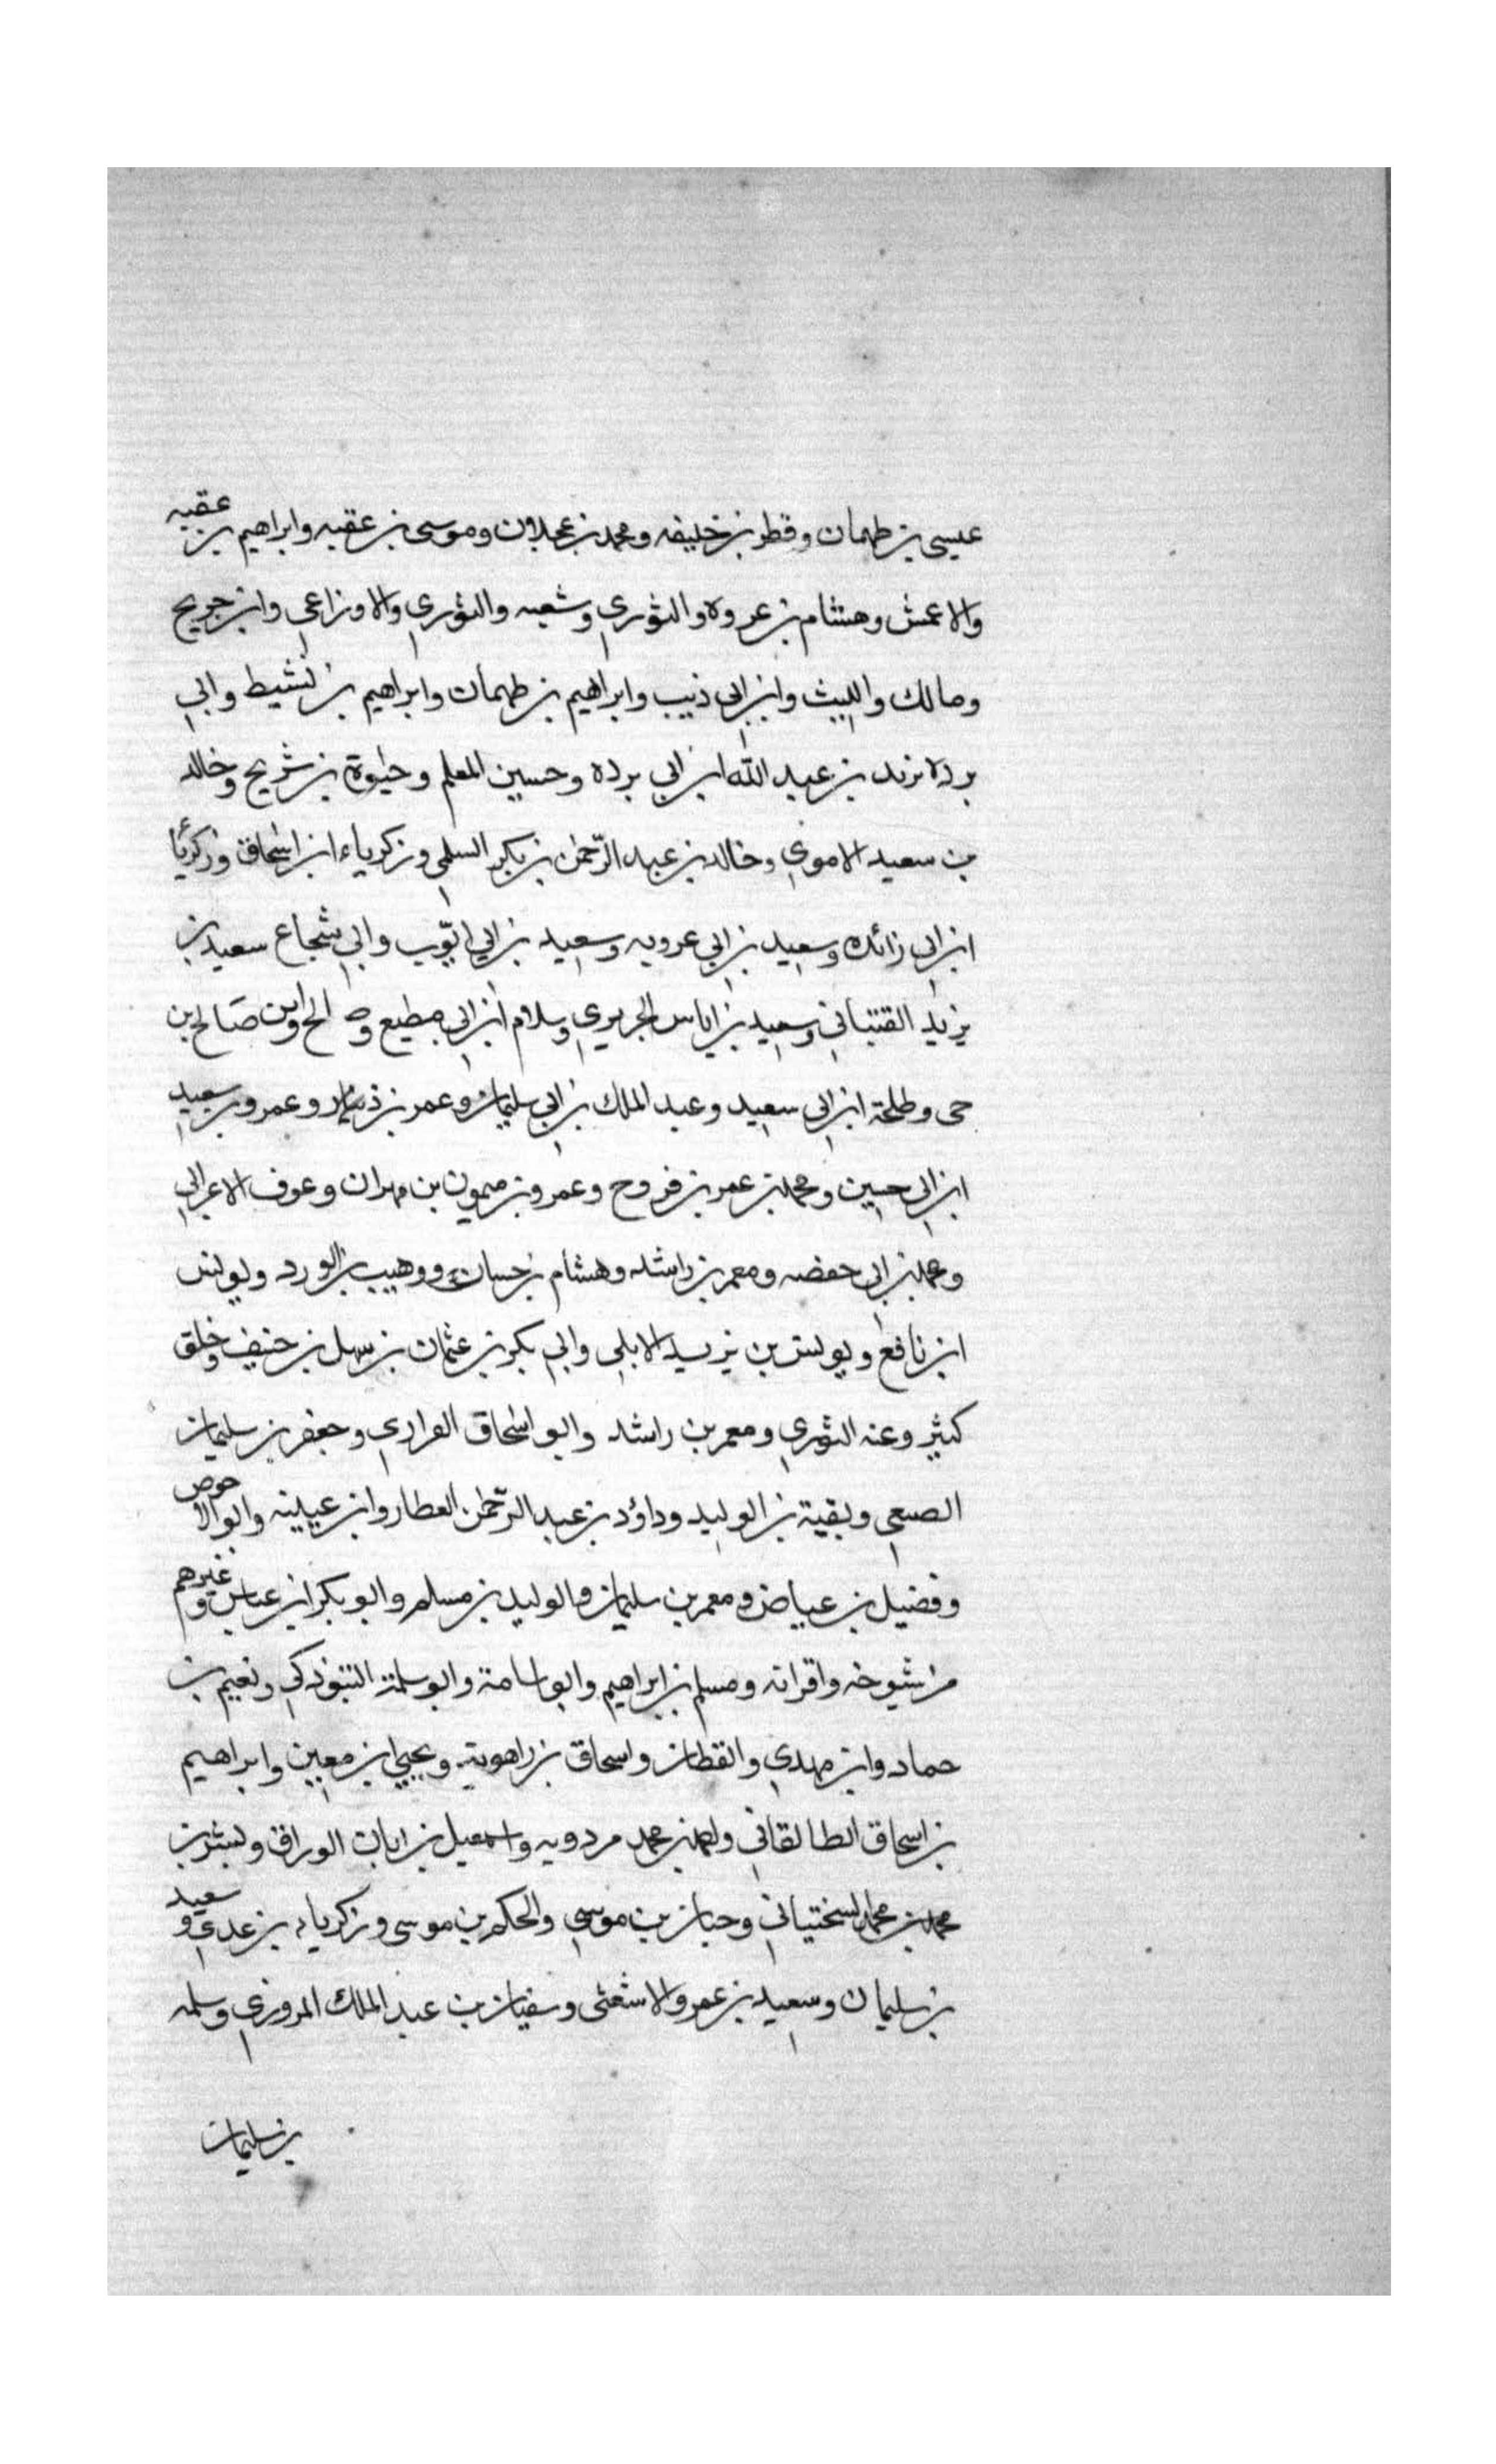 عيسى بن طهمان وقطر بن خليفه ومحمد بن عجلان وموسى بن عقبه وابراهيم بن عقبه
والاعمش وهشام بن عروه والثوري وشعبه والثوري والاوزاعي وابن جريح
ومالك والليث وابن ابي ذيب وابراهيم بن طهمان وابراهيم بن نشيط وابي
برده بريد بن عبد الله ابن ابي برده وحسين المعلم وحيوة بن شريح وخالد
بن سعيد الاموي وخالد بن عبد الرحمن بن بكر السلمي وزكرياء ابن اسحاق وزكريا
ابن ابي زائده وسعيد بن ابي عروبه وسعيد بن ابي ايوب وابي شجاع سعيد بن
يزيد القتباني وسعيد بن اياس الجريري وسلام ابن ابي مطيع وصالح وابن صالح بن
حى وطلحة ابن ابي سعيد وعبد الملك بن ابي سليمان وعمر بن ذر وعمرو بن سعيد
ابن ابي حسين ومحمد بن عمر بن فروخ وعمرو بن ميمون بن مهران وعوف الاعرابي
ومحمد بن ابي حفصه ومعمر بن راشد وهشام بن حسان ووهيب بن الورد ويونس
ابن نافع ويونس بن يزيد الابلي وابي بكر بن عثمان بن سهل بن حنيف وخلق
كثير وعنه الثوري ومعمر بن راشد وابو اسحاق الفزاري وجعفر بن سليمان
الصبعي وبقية بن الوليد وداؤد بن عبد الرحمن العطار وابن عيينه وابو الاحوص
وفضيل بن عياض ومعمر بن سليمان والوليد بن مسلم وابو بكر ابن عياش وغيرهم
من شيوخه واقرانه ومسلم بن ابراهيم وابو اسامة وابو سلمة التبوذكي ونعيم بن
حماد وابن مهدي والقطان واسحاق بن راهوية ويحيي ابن معين وابراهيم
بن اسحاق الطالقاني واحمد بن محمد مردويه واسمعيل بن ابان الوراق وبشر بن
محمد بن محمد السختياني وحبان بن موسى والحكم بن موسى وزكرياء بن عدي وسعيد
بن سليمان وسعيد بن عمرو الاشعثى وسفيان بن عبد الملك المروزي وسلمه
بن سليمان